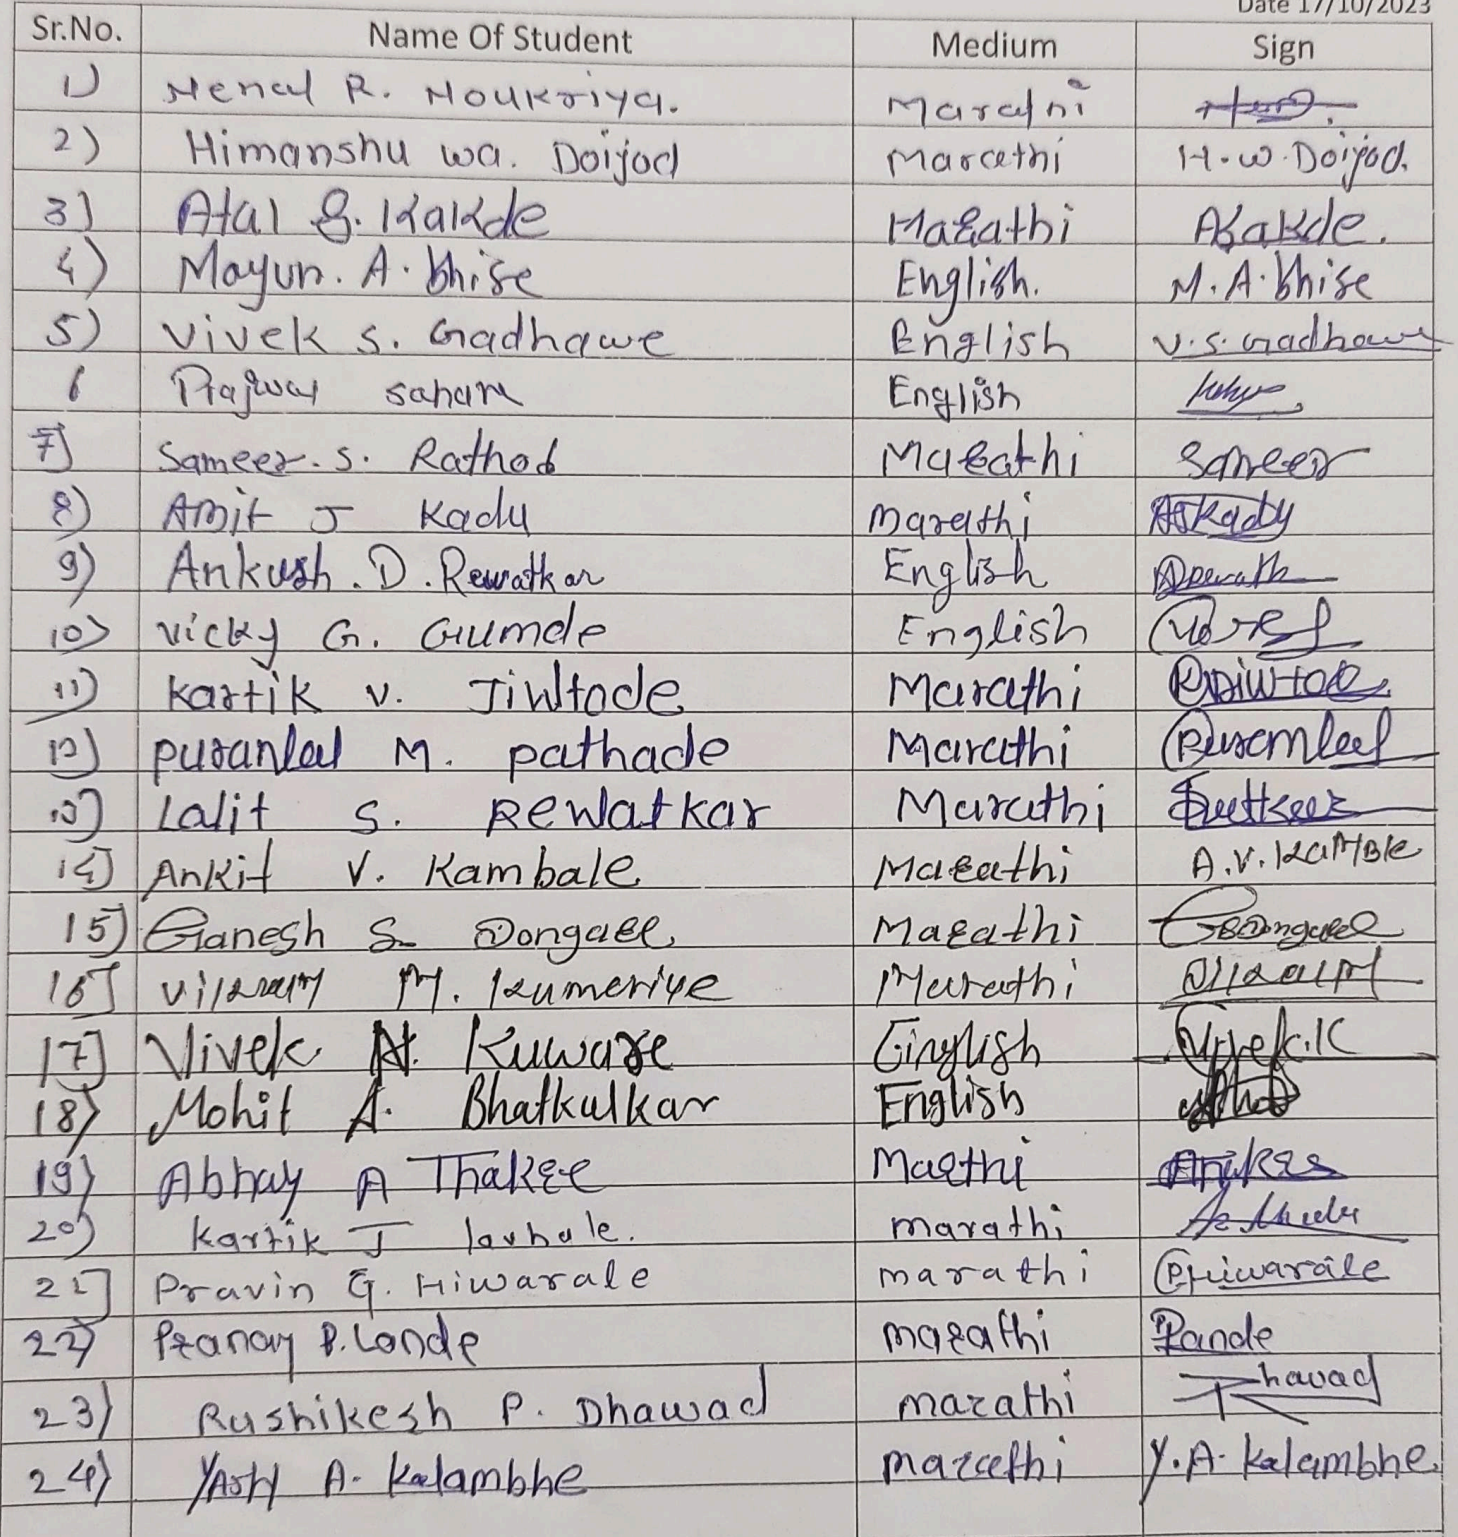 Date 17/10/2023
Sr.No. Name Of Student Medium Sign
1) R. Noukriya. Marathi
2) Himanshu wa. Doijod Marathi H.W.Doijod.
3) Atal G. Kakde Marathi Akakde.
4) Mayur. A. bhise English. M.A.bhise
5) Vivek S. Gadhawe English V.S.Gadhawe
6 Prajwal Sahare English
7] Sameer. S. Rathod Marathi Sameer
8) Amit J Kadu Marathi AJKadu
9) Ankush. D. Rewatkar English
10) Vicky G. Gumde English
11) Kartik V. Jiwtode Marathi
12) puranlal M. pathade Marathi Puranlal
13) Lalit S. Rewatkar Marathi
14) Ankit V. Kambale Marathi A.V.KaMBle
15) Ganesh S Dongare Marathi GSDongare
16] Vikram M. Kumeriye Marathi Vikram
17] Vivek N. Kuware English Vivek.K
18) Mohit A. Bhatkulkar English
19) Abhay A Thakre Marthi
20) Kartik J lavhale. marathi
21] Pravin G. Hiwarale marathi PHiwarale
22) Pranay P. Londe marathi
23) Rushikesh P. Dhawad marathi
24) YASH A. Kalambhe marathi Y.A. Kalambhe.